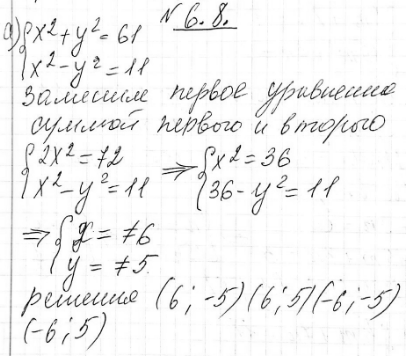 N 6.8.
a) { x² + y² = 61
{ x² - y² = 11
Заменим первое уравнение
суммой первого и второго
{ 2x² = 72 ⇒ { x² = 36
{ x² - y² = 11 { 36 - y² = 11
⇒ { x = ±6
{ y = ±5
решения (6; -5) (6; 5) (-6; -5)
(-6; 5)